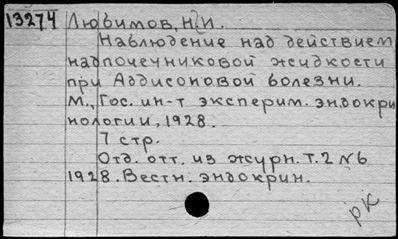 13274 Любимов, Н.И.
Наблюдение над действием
надпочечниковой жидкости
при Аддисоновой болезни.
М., Гос. ин-т эксперим. эндокри
нологии, 1928.
7 стр.
Отд. отт. из журн. Т.2 №6
1928. Вестн. эндокрин.
рК